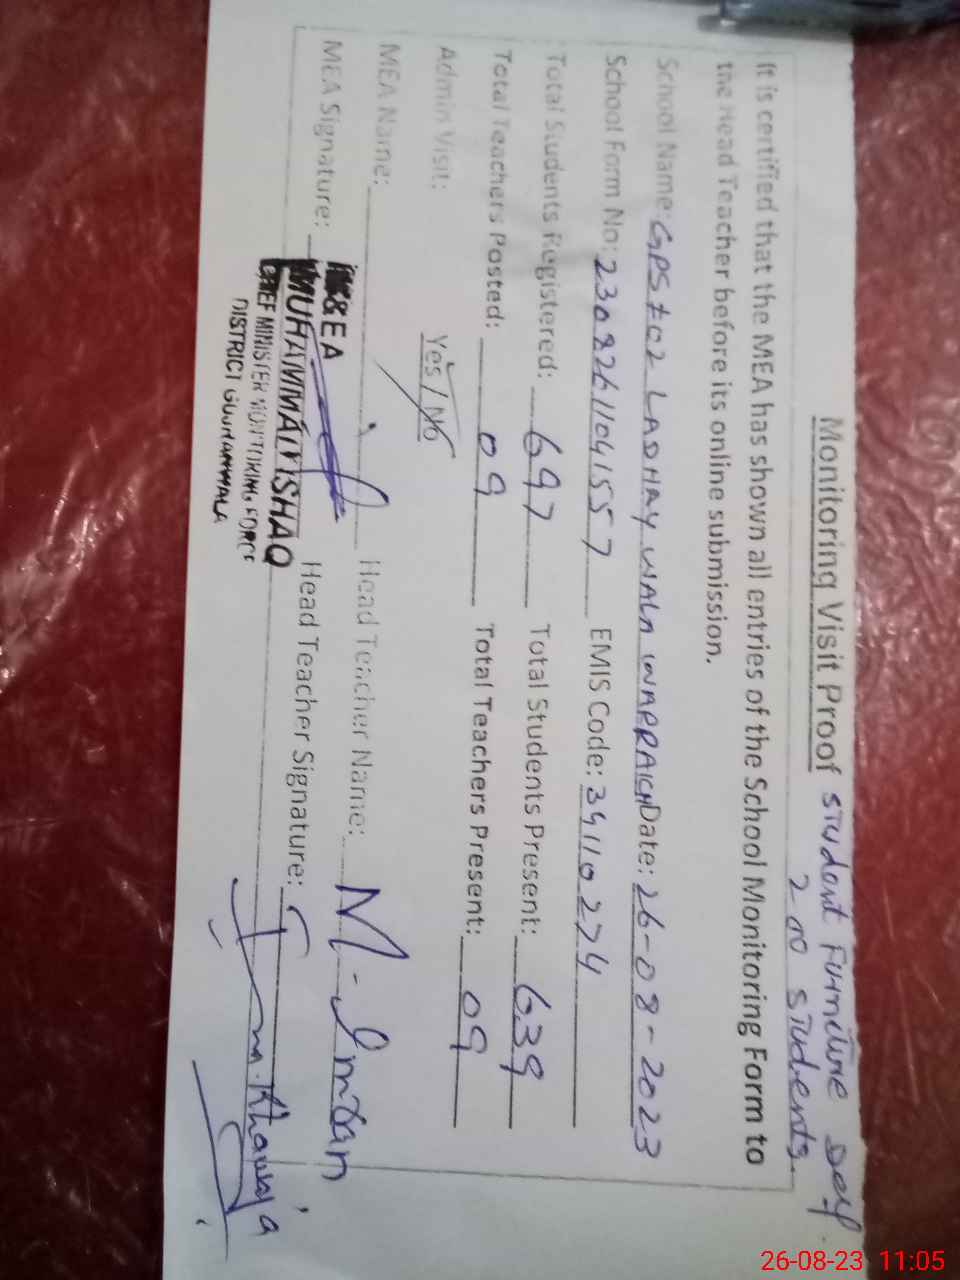 Monitoring Visit Proof Student Furniture Def.
200 students.
It is certified that the MEA has shown all entries of the School Monitoring Form to
the Head Teacher before its online submission.
School Name: GPS #02 LADHAY WALA WARRAICH Date: 26-08-2023
School Form No: 230826110415 57 EMIS Code: 34110274
Total Students Registered: 697 Total Students Present: 639
Total Teachers Posted: 09 Total Teachers Present: 09
Admin Visit: Yes / No
MEA Name: Head Teacher Name: M. Imran
MEA Signature: Head Teacher Signature:
M&EA
MUHAMMAD ISHAQ
CHIEF MINISTER MONITORING FORCE
DISTRICT GUJRANWALA
26-08-23 11:05